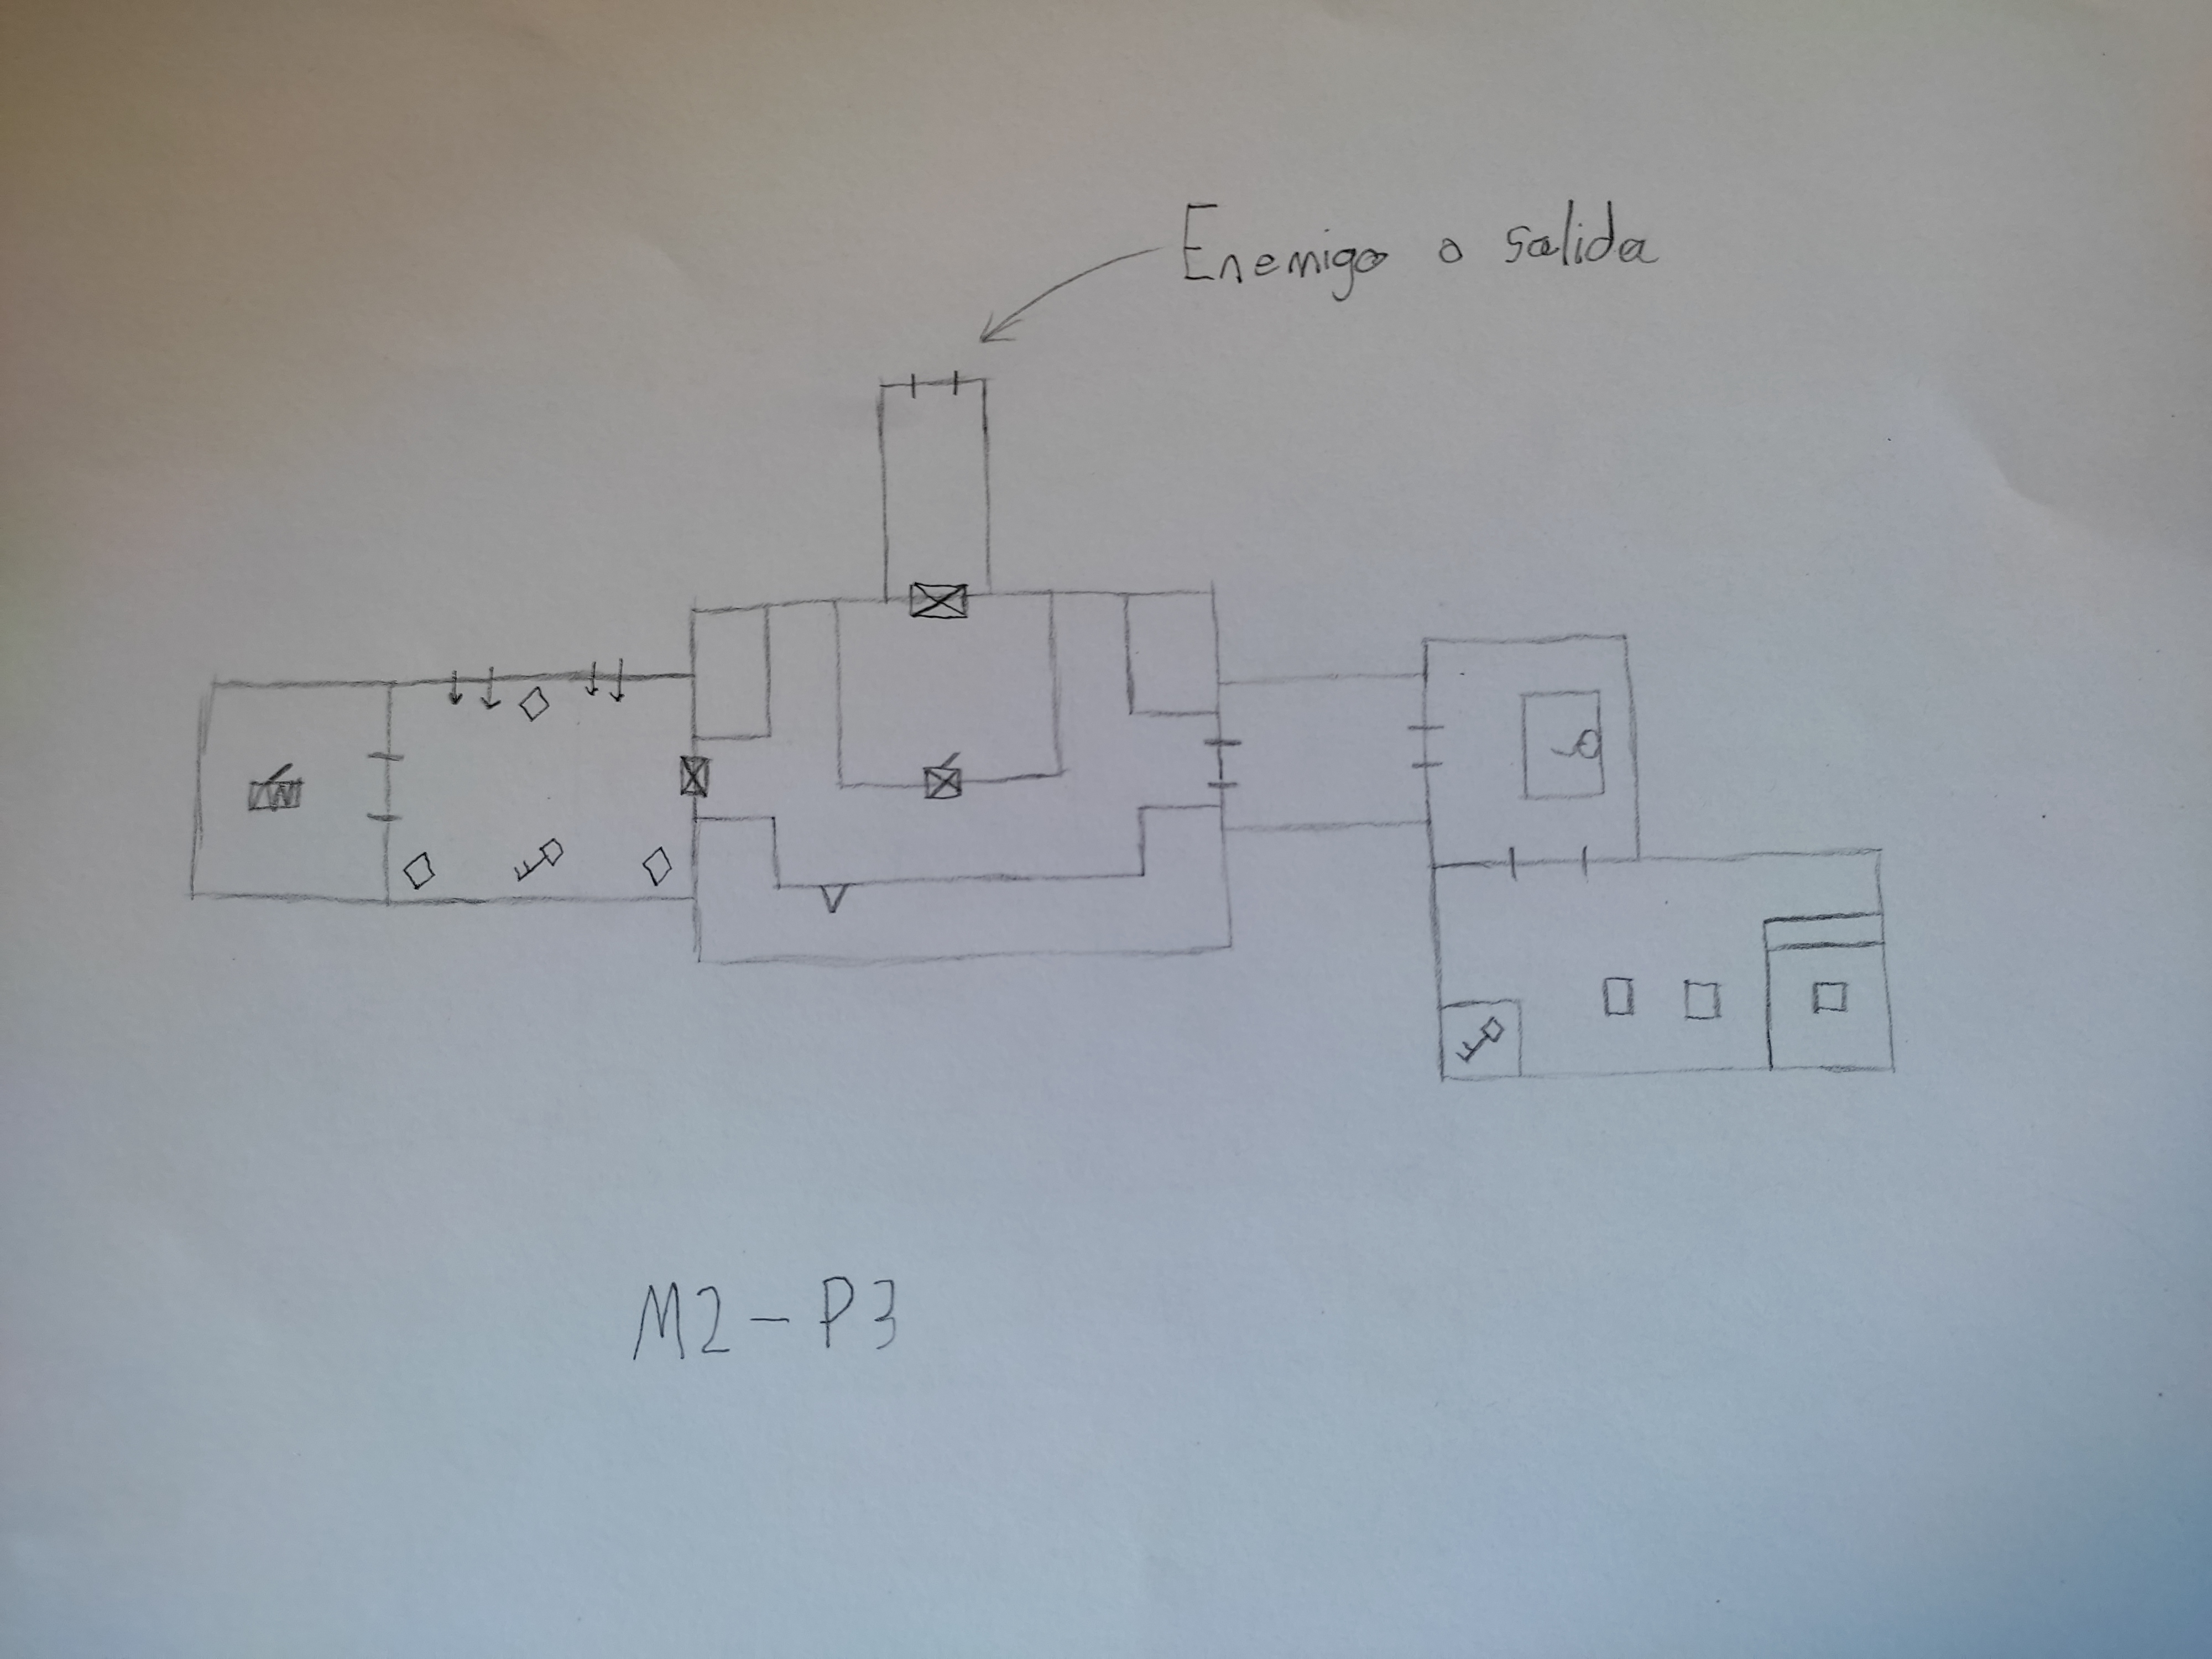 Enemigo o salida
M2-P3